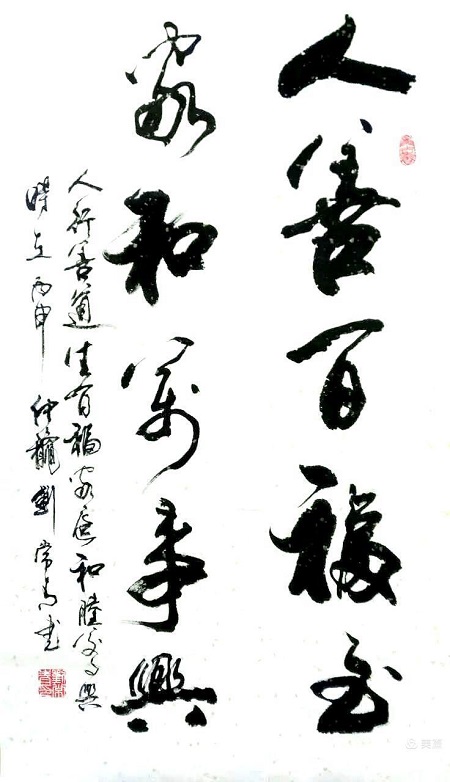 人善百福至
家和萬事興
人行善道 百福家庭和睦 興
時在丙申 仲龍劉常青書